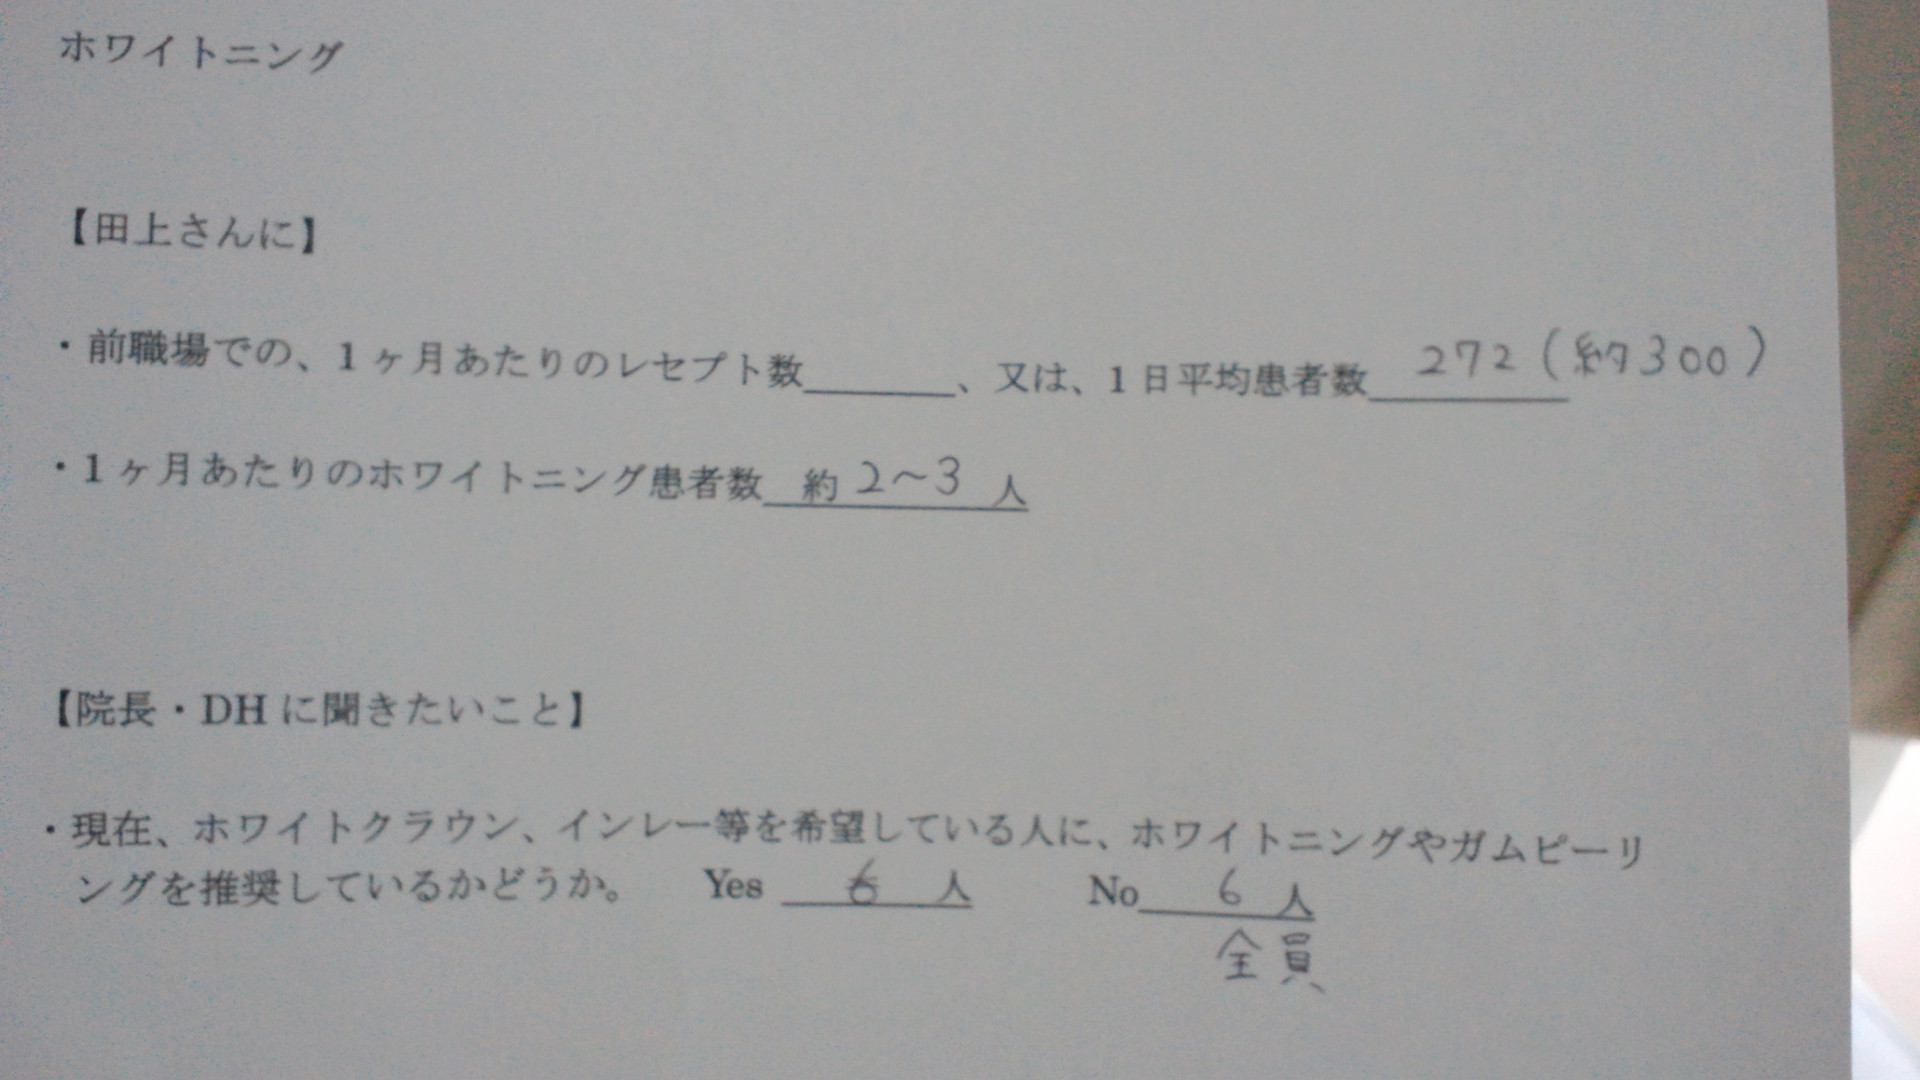 ホワイトニング
【田上さんに】
・前職場での、1ヶ月あたりのレセプト数______、又は、1日平均患者数 272（約300）
・1ヶ月あたりのホワイトニング患者数 約 2～3 人
【院長・DHに聞きたいこと】
・現在、ホワイトクラウン、インレー等を希望している人に、ホワイトニングやガムピーリ
ングを推奨しているかどうか。 Yes 6 人 No 6 人
全員